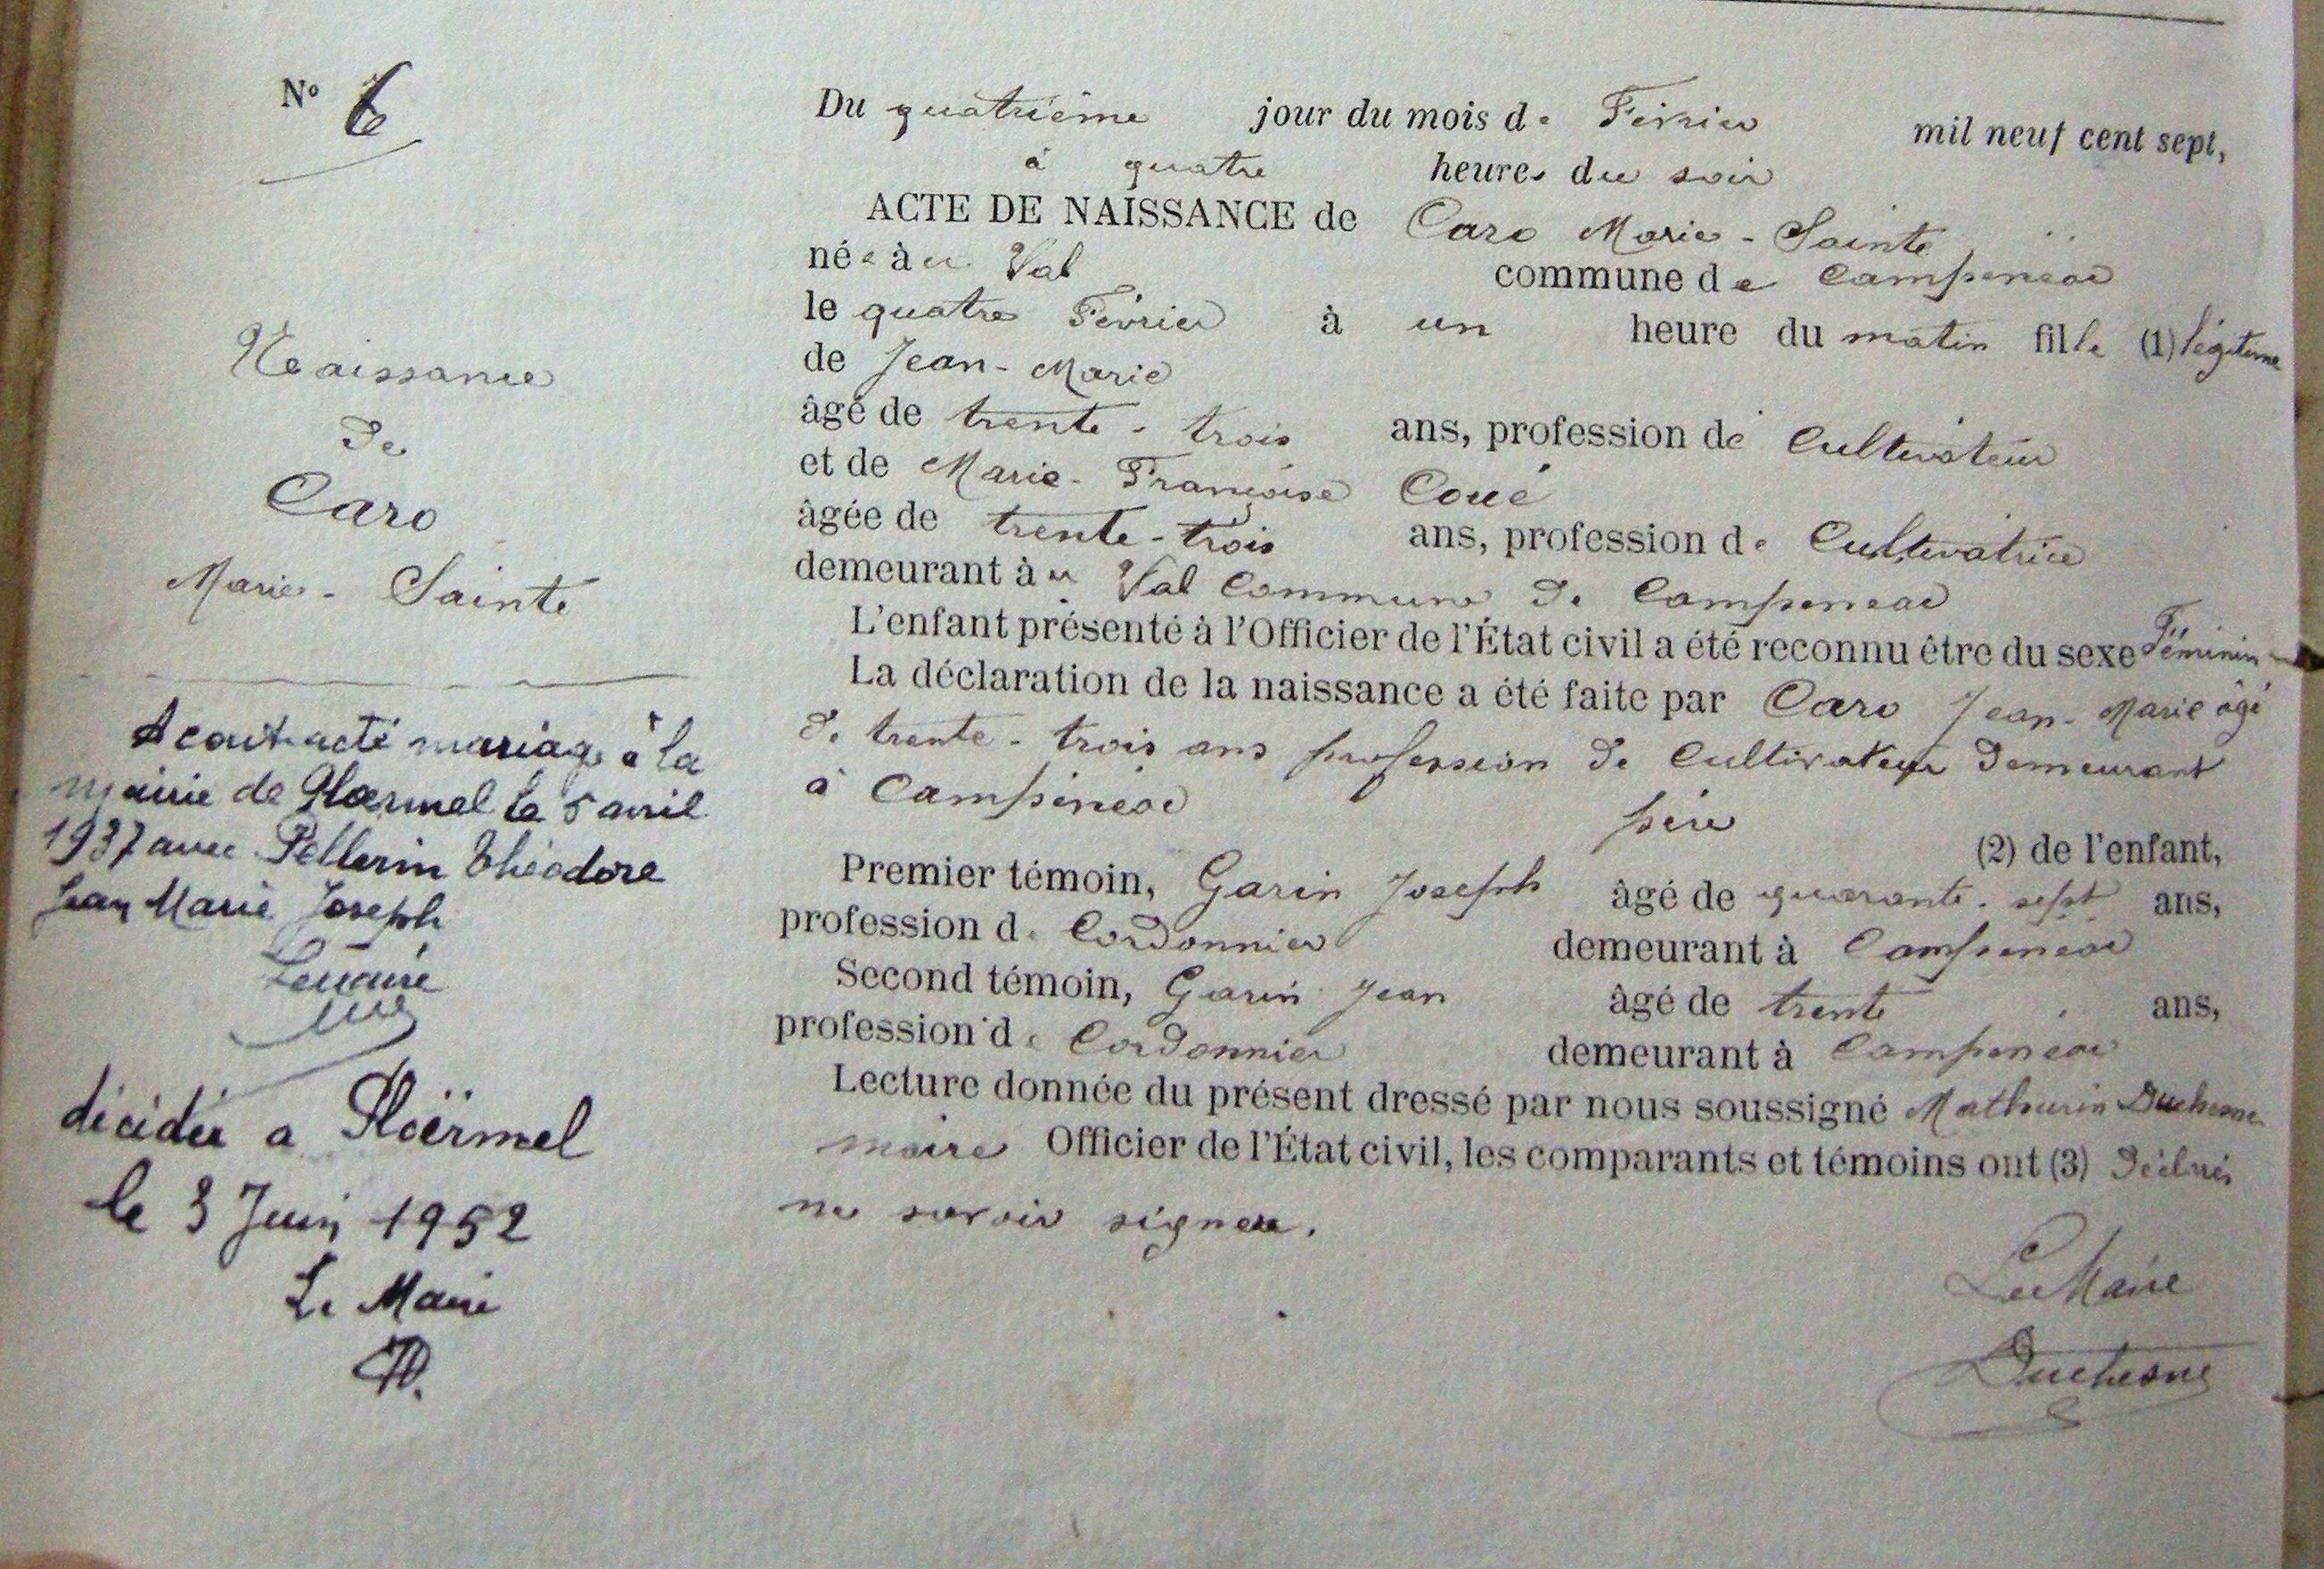 N° 6
Naissance
de
Caro
Marie-Sainte
A contracté mariage à la
mairie de Ploermel le 5 avril
1937 avec Pellerin Théodore
Jean Marie Joseph
Le maire
décédée a Ploërmel
le 3 Juin 1952
Le Maire
Du quatrième jour du mois de Février mil neuf cent sept,
à quatre heures du soir
ACTE DE NAISSANCE de Caro Marie-Sainte
née à au Val commune de Campénéac
le quatre Février à un heure du matin fille (1) légitime
de Jean-Marie
âgé de trente-trois ans, profession de Cultivateur
et de Marie-Françoise Coué
âgée de trente-trois ans, profession de Cultivatrice
demeurant à au Val Commune de Campeneac
L'enfant présenté à l'Officier de l'État civil a été reconnu être du sexe Féminin
La déclaration de la naissance a été faite par Caro Jean-Marie âgé
de trente-trois ans profession de Cultivateur demeurant
à Campénéac père (2) de l'enfant,
Premier témoin, Garin Joseph âgé de quarante-sept ans,
profession de Cordonnier demeurant à Campénéac
Second témoin, Garin Jean âgé de trente ans,
profession de Cordonnier demeurant à Campeneac
Lecture donnée du présent dressé par nous soussigné Mathurin Duchesne
maire Officier de l'État civil, les comparants et témoins ont (3) déclarés
ne savoir signer.
Le Maire
Duchesne